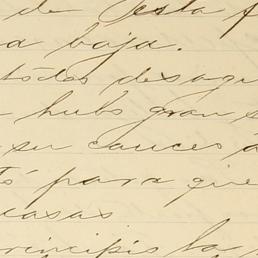 de Costa f
a baja.
todos desagu
hubo gran s
su cauces a
tó para que
casas
principio la